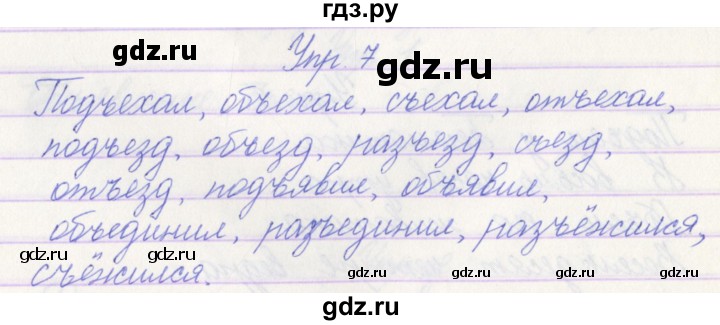 гдз.ру
gdz.ru gdz.ru
Упр 7
Подъехал, объехал, съехал, отъехал,
gdz.ru gdz.ru gdz.ru
подъезд, объезд, разъезд, съезд,
отъезд, подъявил, объявил,
объединил, разъединил, разъёжился,
gdz.ru gdz.ru gdz.ru gdz.ru
съёжился.
gdz.ru